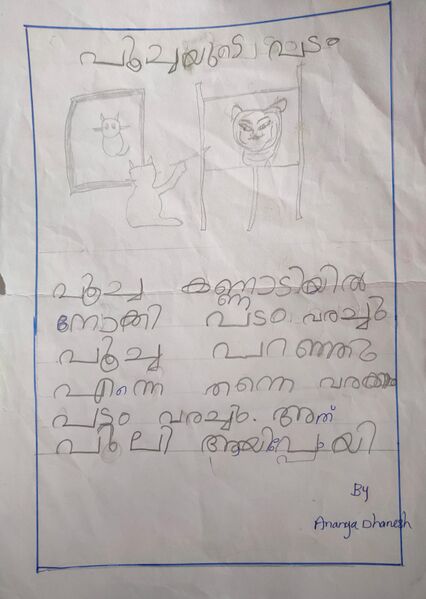 പൂച്ചയുടെ പടം
പൂച്ച കണ്ണാടിയിൽ
നോക്കി പടം വരച്ചു
പൂച്ച പറഞ്ഞു
എന്നെ തന്നെ വരക്കാം
പടം വരച്ചു. അത്
പുലി ആയിപ്പോയി
By
Ananga Dhanesh